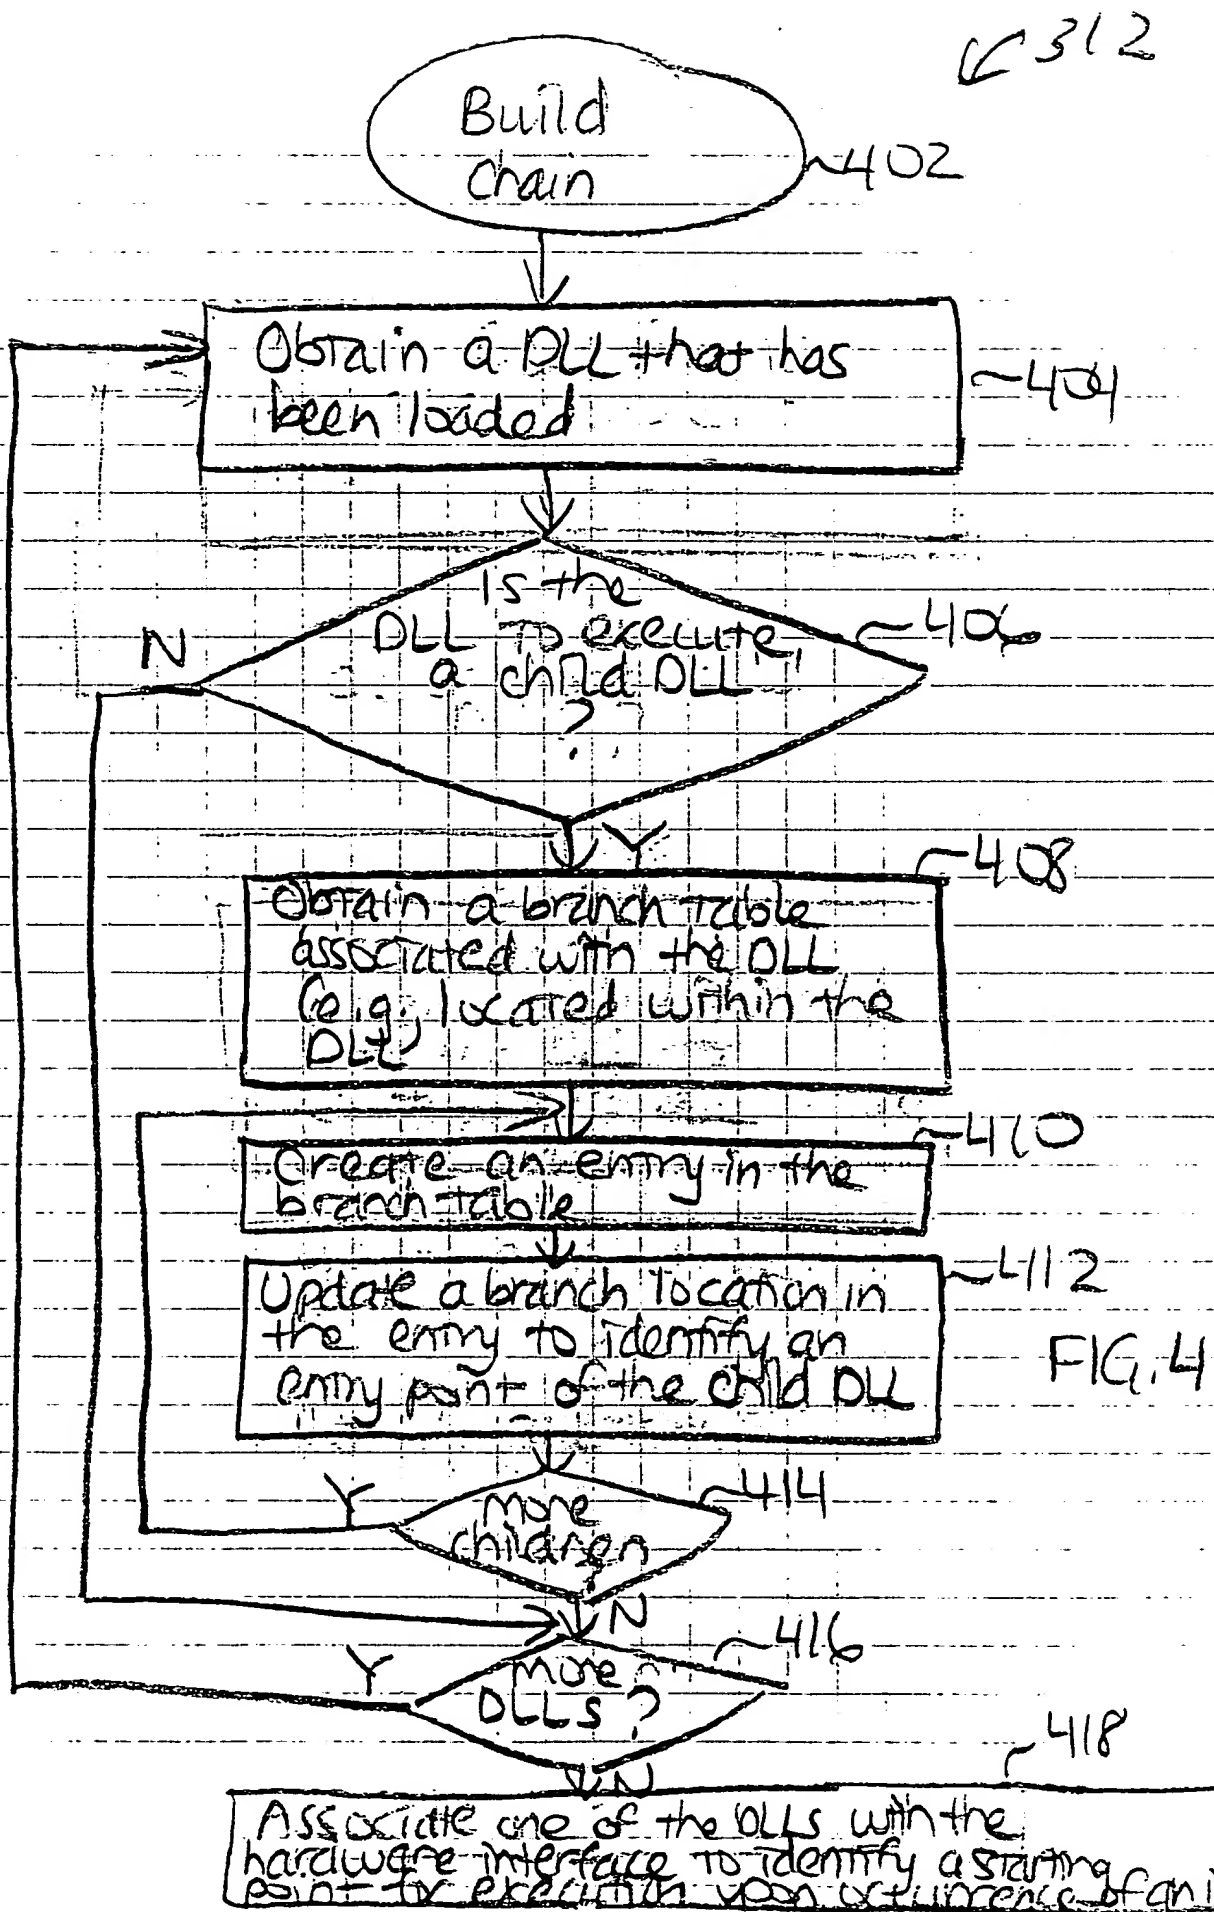 312
Build
Chain
402
Obtain a DLL that has
been loaded
404
Is the
DLL to execute
a child DLL
?
406
N
Y
408
Obtain a branch table
associated with the DLL
(e.g., located within the
DLL)
410
Create an entry in the
branch table
412
Update a branch location in
the entry to identify an
entry point of the child DLL
FIG. 4
414
Y
more
children
?
N
416
Y
more
DLLs?
N
418
Associate one of the DLLs with the
hardware interface to identify a starting
point for execution upon occurrence of an